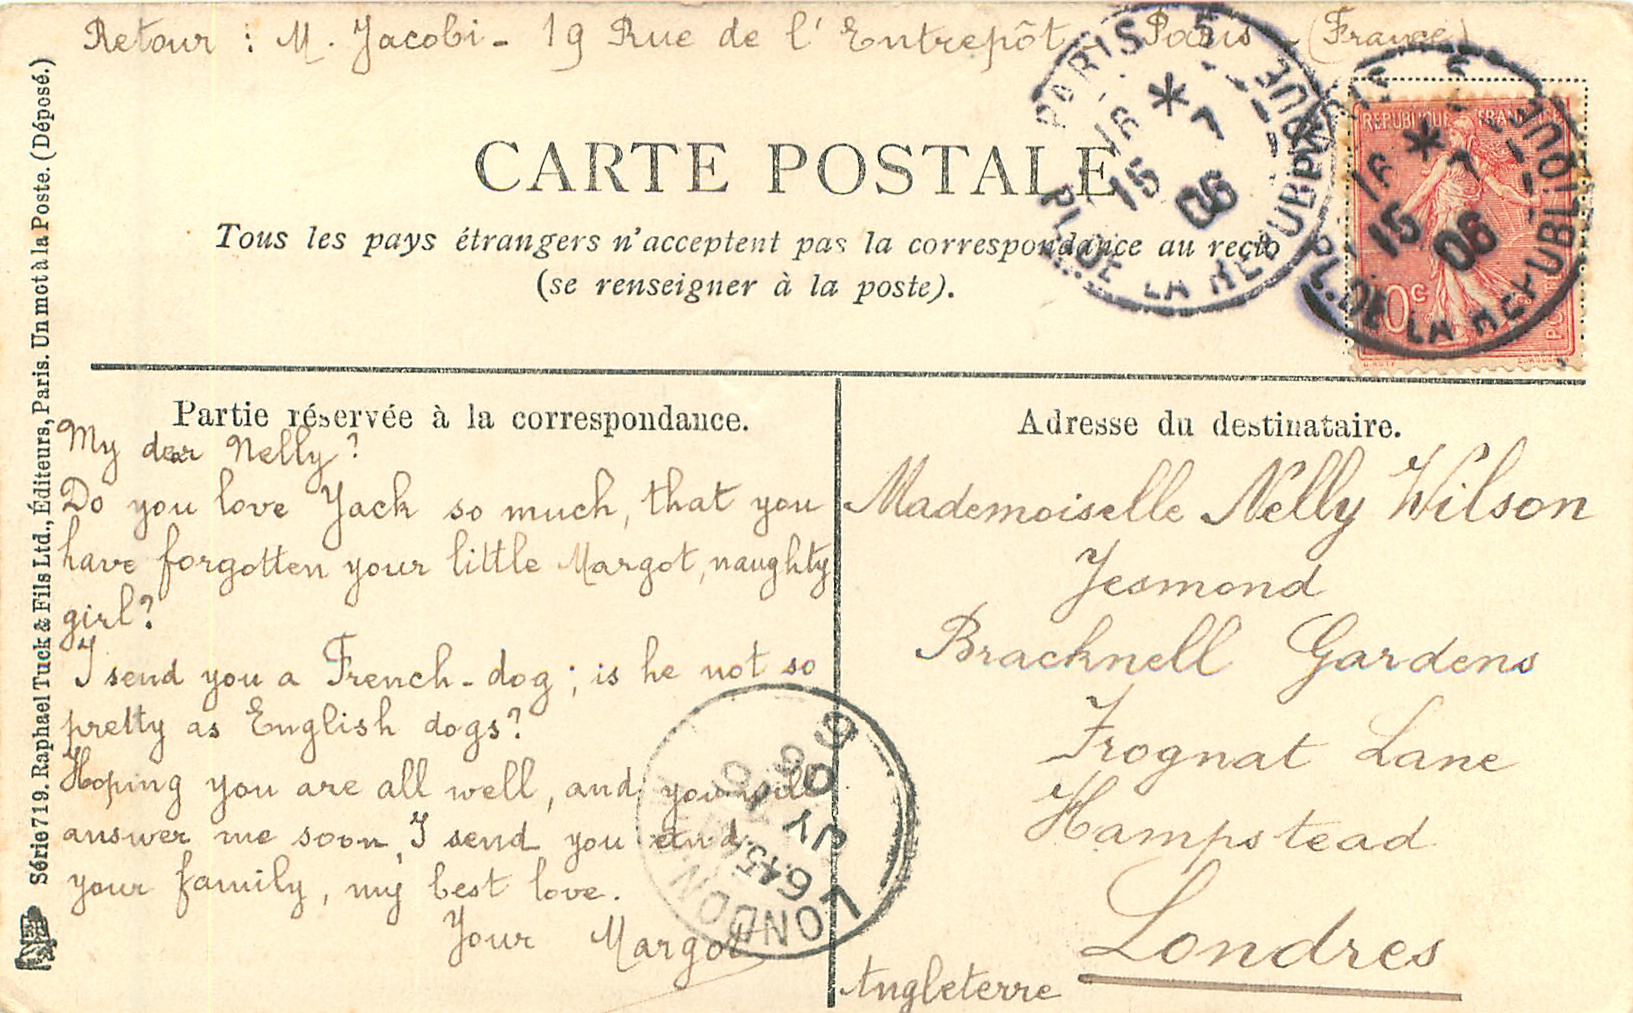 Retour : M. Jacobi - 19 Rue de l'Entrepôt - Paris - (France)
CARTE POSTALE
Tous les pays étrangers n'acceptent pas la correspondance au recto
(se renseigner à la poste).
PARIS 5
PL. DE LA REPUBLIQUE
16 * 7
15 06
REPUBLIQUE FRANÇAISE
10c
PL. DE LA REPUBLIQUE
16 * 7
15 06
Série 719. Raphael Tuck & Fils Ltd., Éditeurs, Paris. Un mot à la Poste. (Déposé.)
Partie réservée à la correspondance.
My dear Nelly?
Do you love Jack so much, that you
have forgotten your little Margot, naughty
girl?
I send you a French-dog ; is he not so
pretty as English dogs?
Hoping you are all well, and you will
answer me soon, I send you and
your family, my best love.
Your Margot
LONDON. N.W
6.45 A
JY 10
06
9
Adresse du destinataire.
Mademoiselle Nelly Wilson
Jesmond
Bracknell Gardens
Frognat Lane
Hampstead
Londres
Angleterre